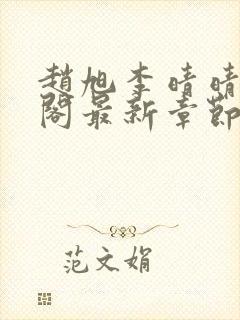 趙旭李晴晴
閣最新章節
范文娟